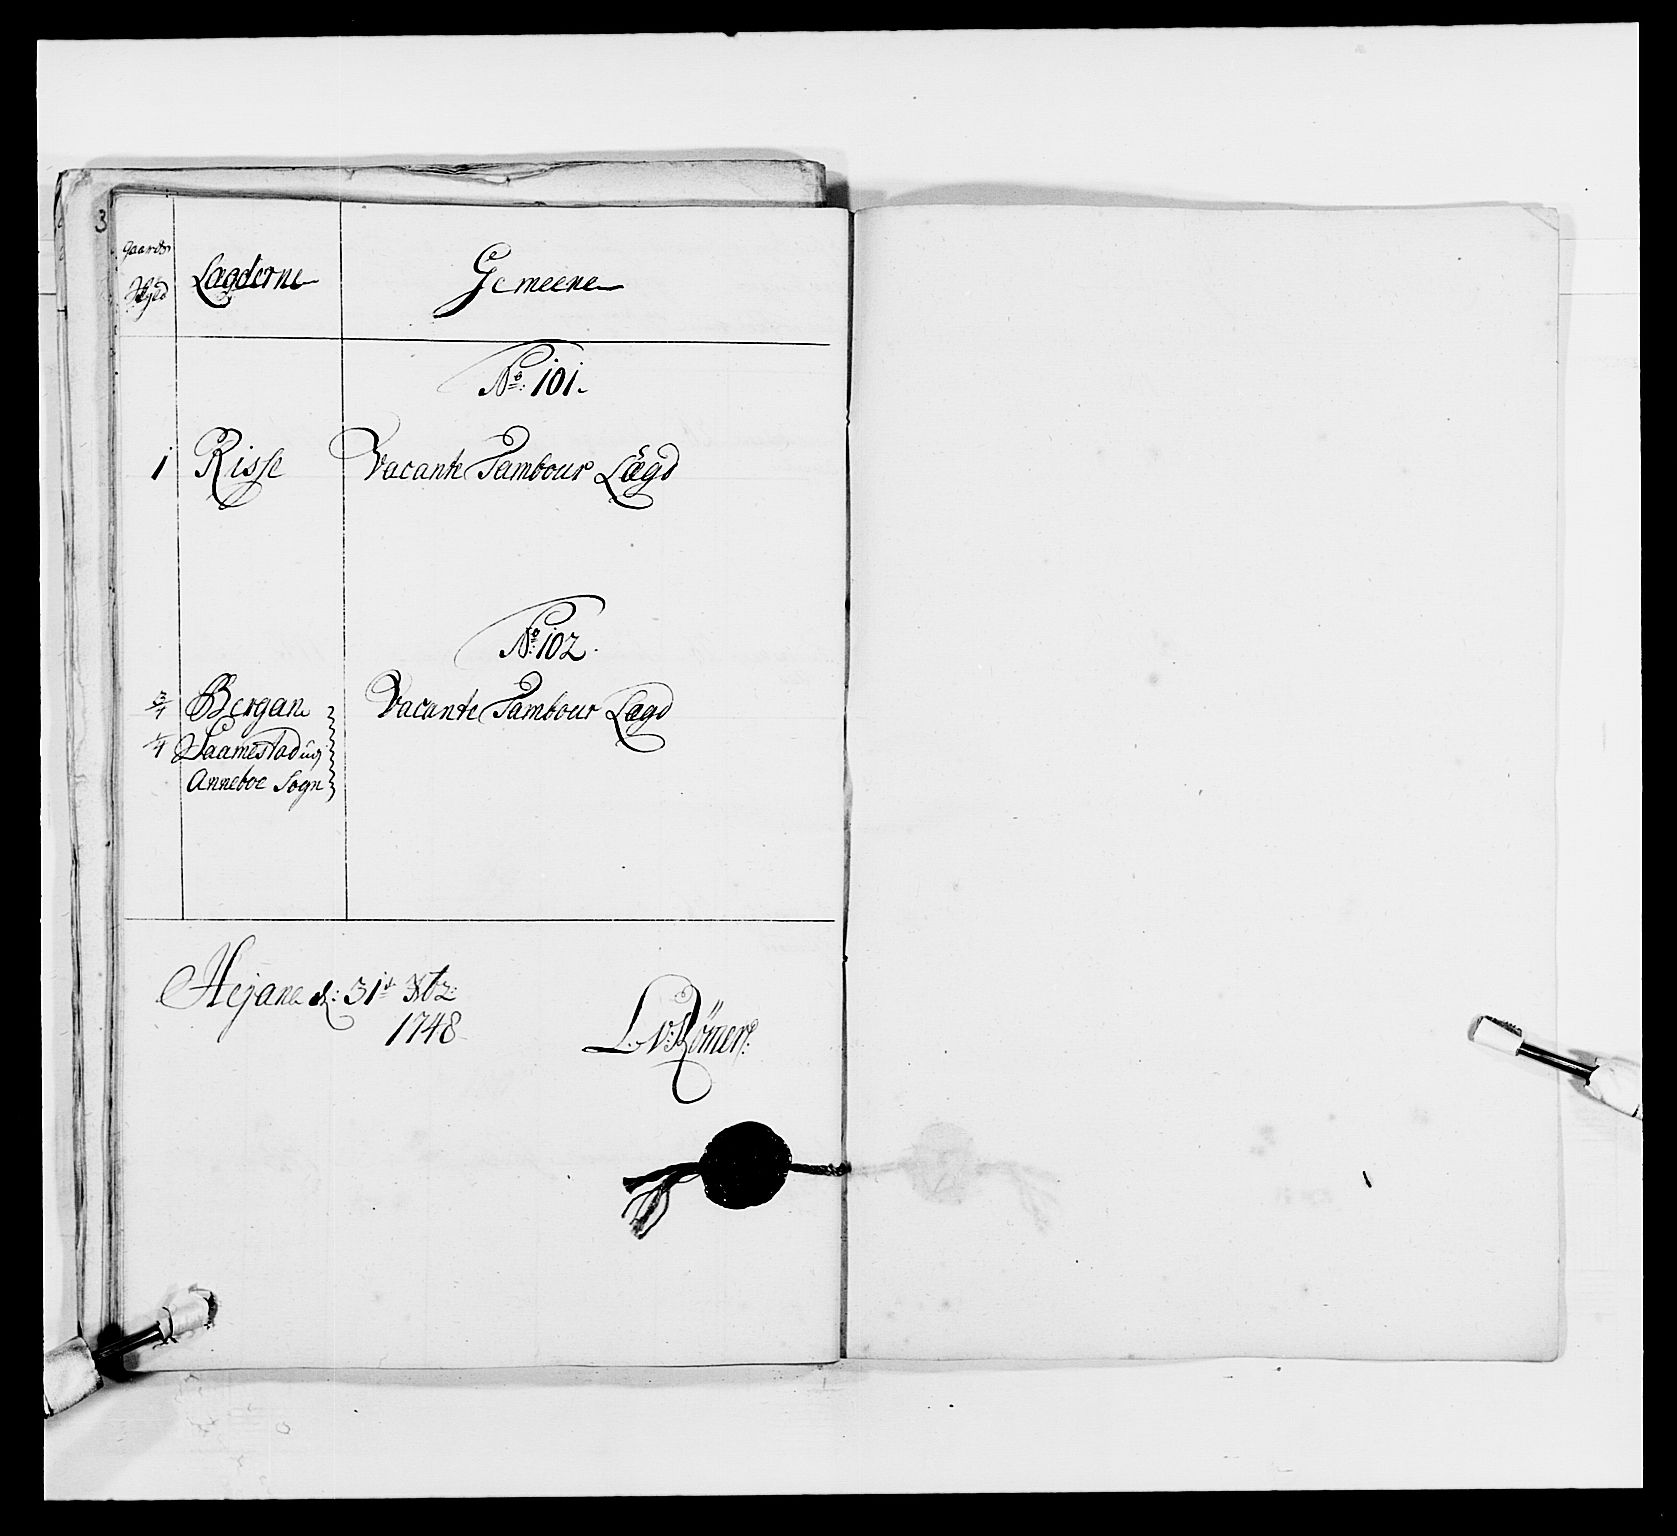 3
Gaards
Lægderne
Gemeene
No: 101.
1 Risse Vacante Tambour Lægd
No: 102.
3/4 Bergan Vacante Tambour Lægd
1/4 Saamestad udj
Anneboe Sogn
Hejane d: 31te Xbr:
1748
L: v: Römer